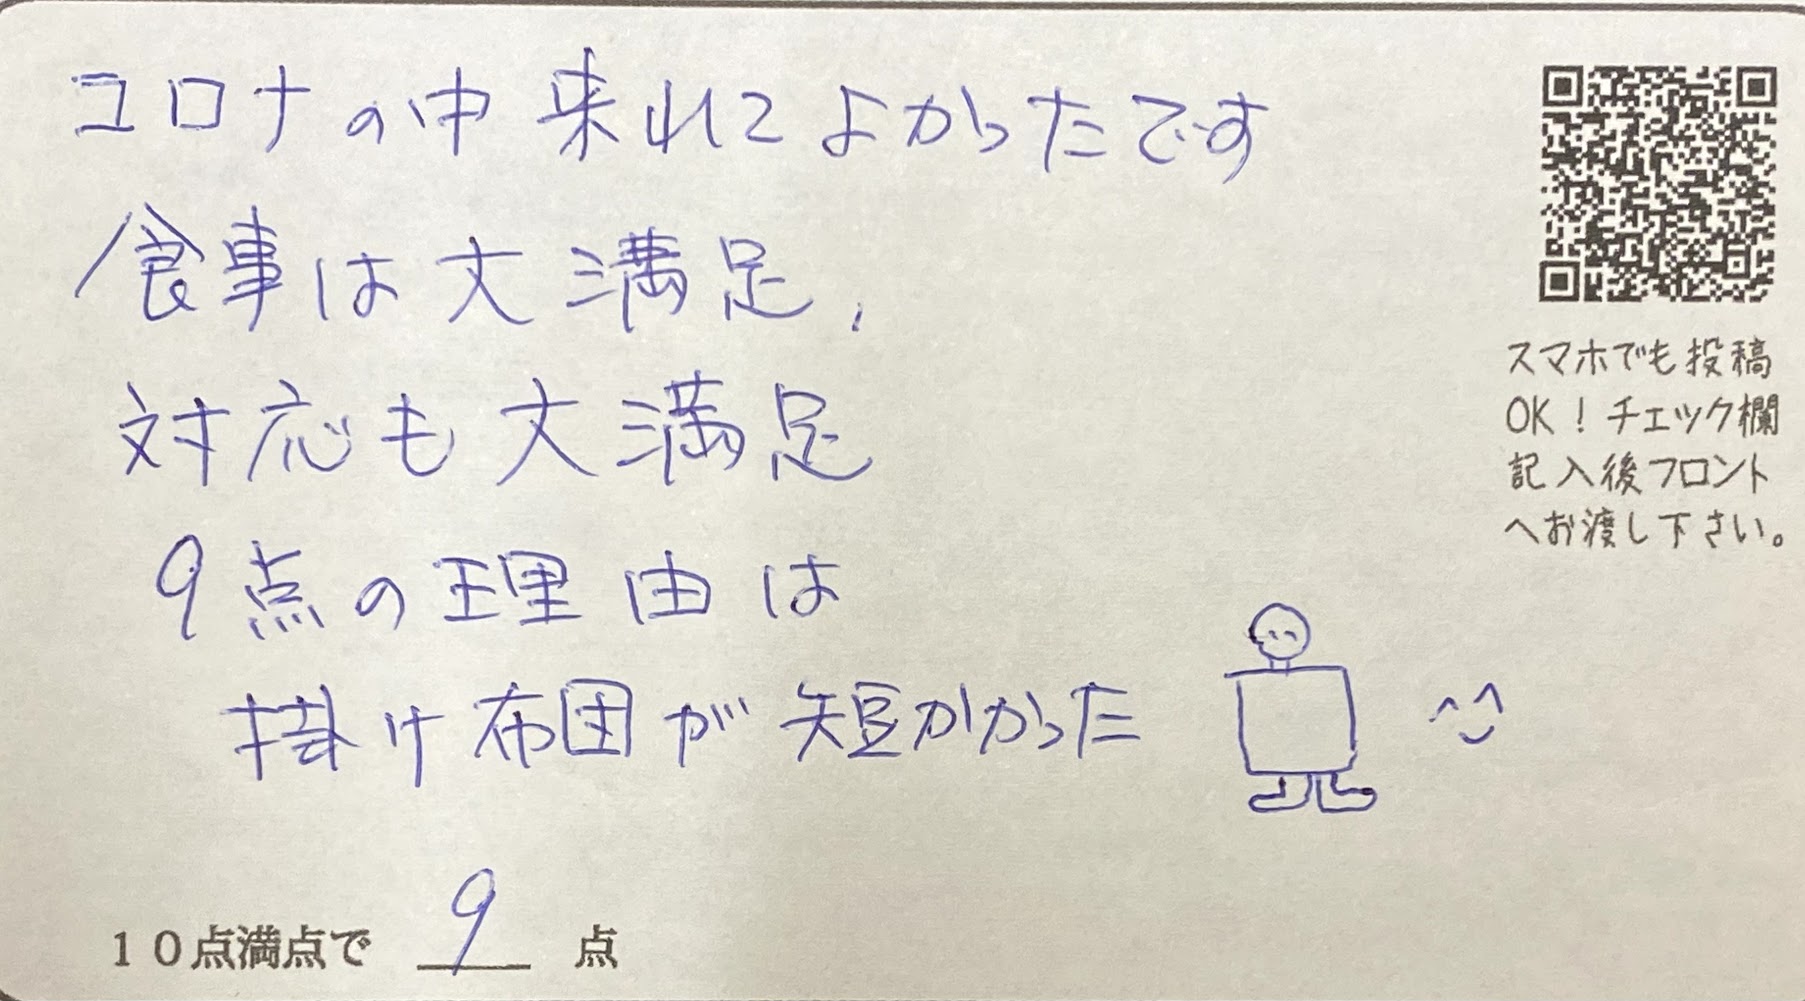 コロナの中来れてよかったです
食事は大満足、
対応も大満足
9点の理由は
掛け布団が短かかった
10点満点で 9 点
スマホでも投稿
OK！チェック欄
記入後フロント
へお渡し下さい。